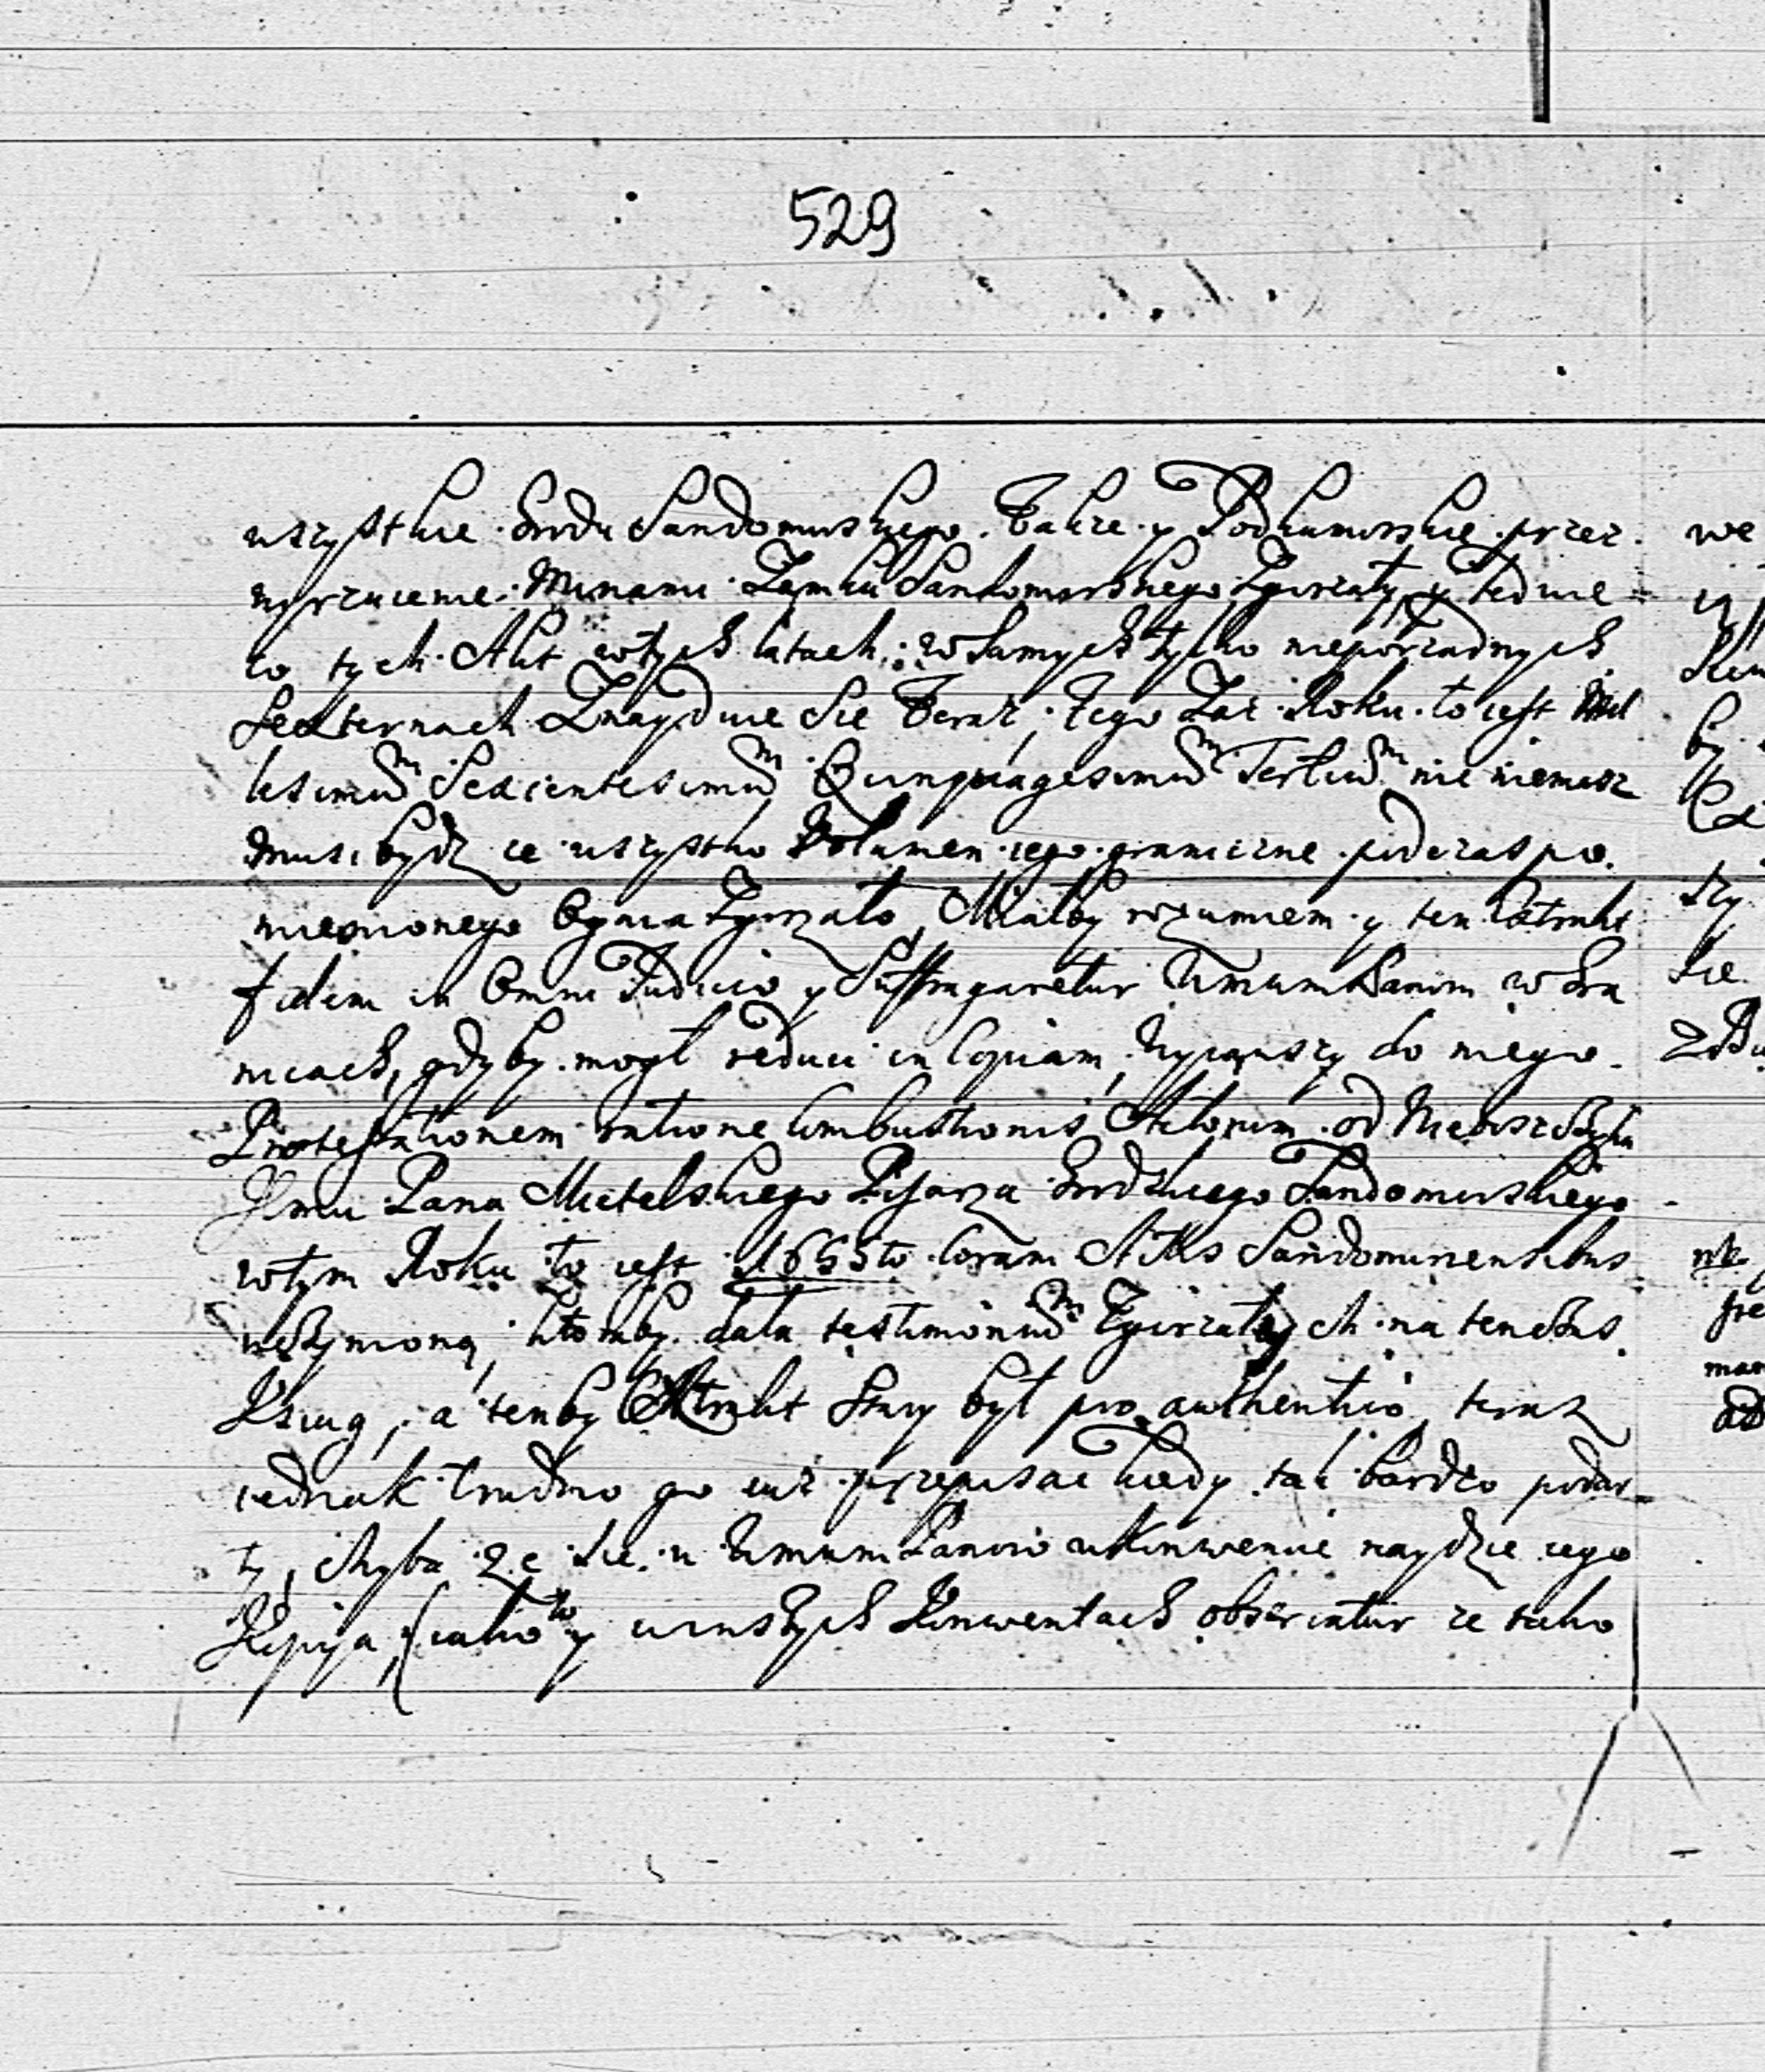 529
wszystkie Grodu Sandomirskiego. Także y Podkomorskie przez
wyrzucenie Minami Zamku Sandomirskiego Zgorzały, y ledwie
co tych Akt wtych latach; w samych tylko nieporządnych
Sexternach Znayduie Się Teraz, tego Zaś Roku to iest Mil
lesimum Sexcentesimum Quinquagesimum Tertium nic niemasz
musi bydz że wszystko Volumen iego graniczne podczas po
mienionego Ognia Zgorzało, Miałby rozumiem y ten Extrakt
fidem in Omni Judicio y Suffragaretur Ummm Panom w Gra
nicach, gdyby mogł reduci in Copiam, wypisawszy do niego
Protestationem ratione Combustionis Actorum od Nieboszczyka
Jmci Pana Mietelskiego Pisarza Grodzkiego Sandomirskiego
wtym Roku to iest 1655to Coram Actis Sandomiriensibus
uczynioną, ktoraby dała testimonium Zgorzałych na ten czas
Ksiug, a tenby Extrakt Stary był pro authentico, teraz
iednak trudno go iuż przepisać kiedy tak bardzo podar
ty, chyba że się u Ummm Panow w Konwencie naydzie iego
Kopija, (iako to y winszych Konwentach obserwatur że tako
we
by
sie